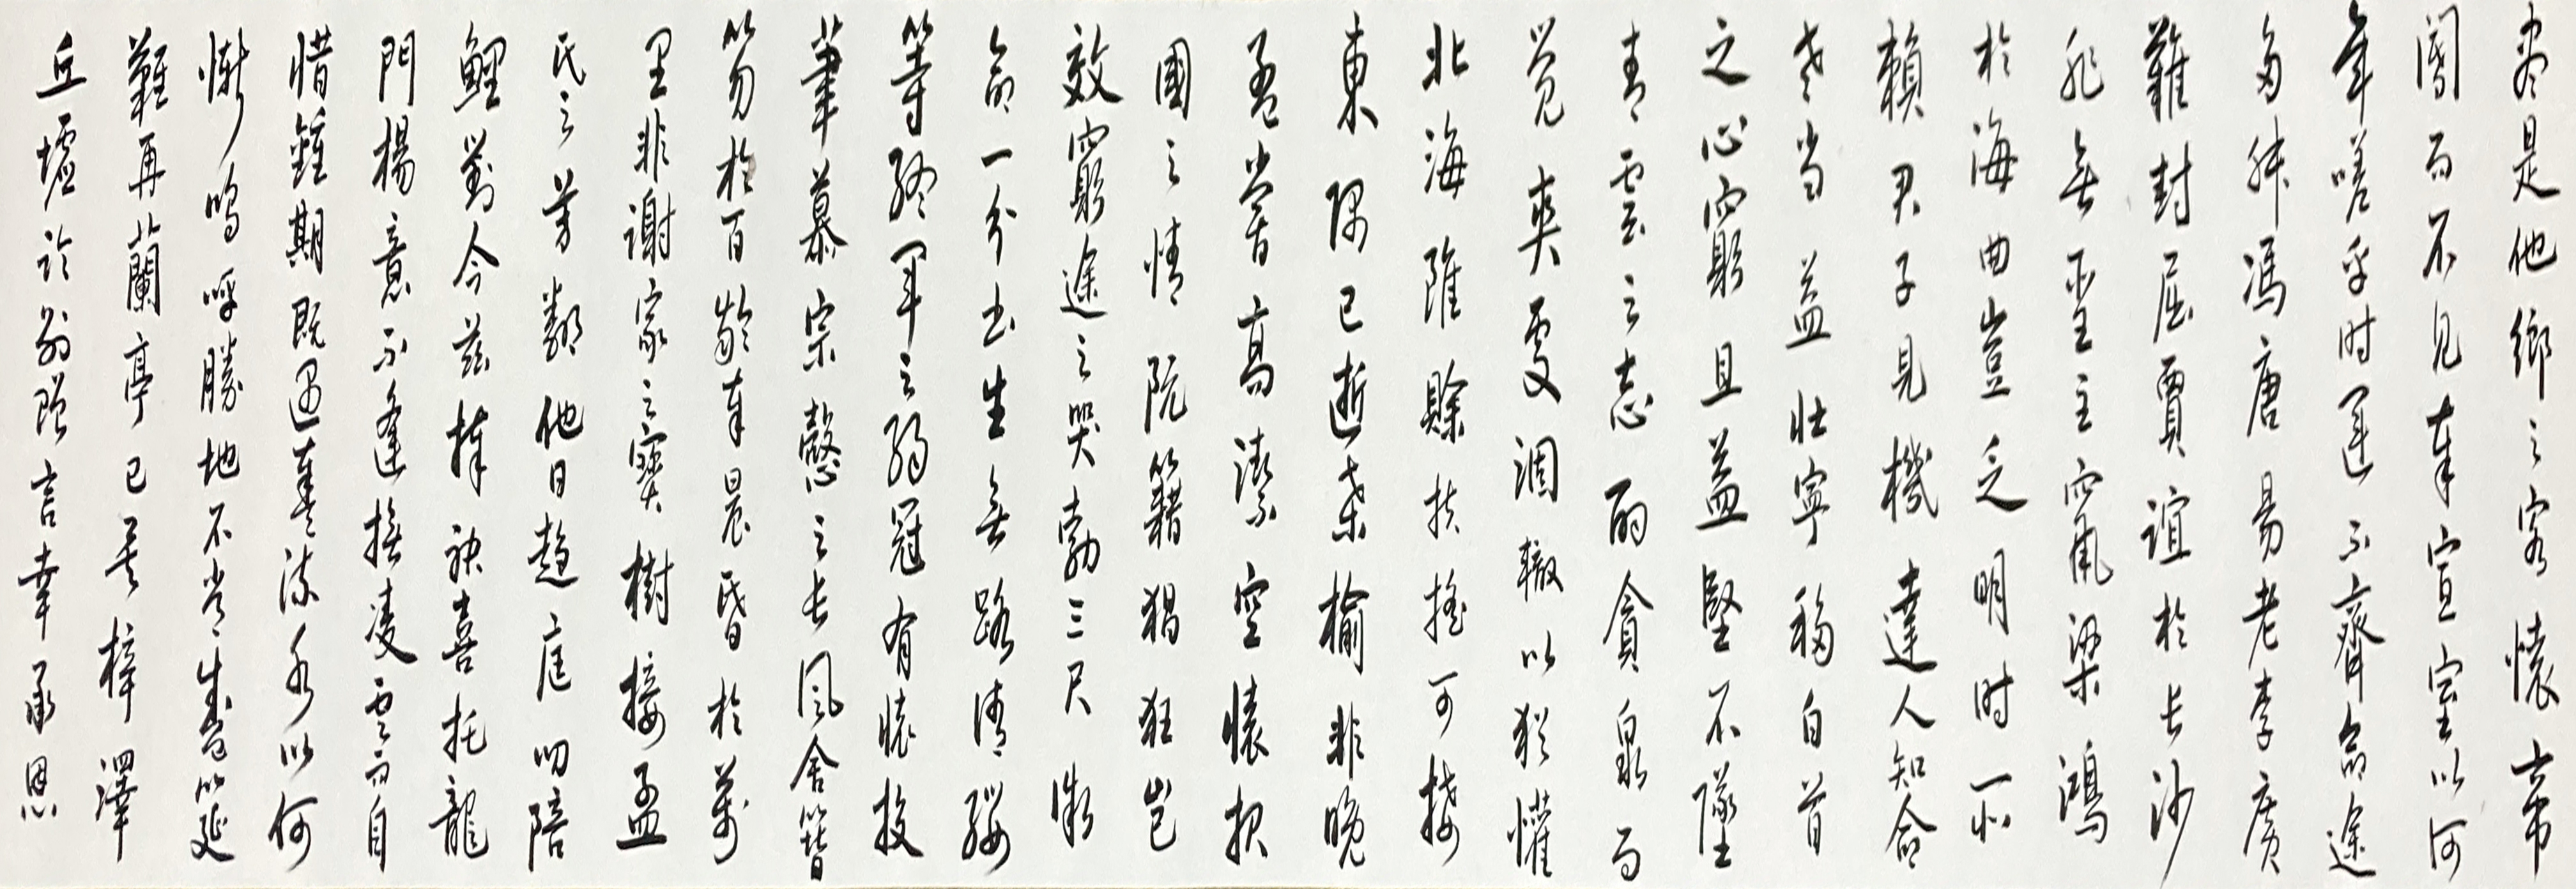 盡是他鄉之客懷帝
閽而不見奉宣室以何
年嗟乎时運不齊命途
多舛馮唐易老李廣
難封屈賈誼於長沙
非無聖主竄梁鴻
於海曲豈乏明时所
賴君子見機達人知命
老当益壯寧移白首
之心窮且益堅不墜
青雲之志酌貪泉而
覺爽處涸轍以猶懽
北海雖賒扶搖可接
東隅已逝桑榆非晚
孟嘗高潔空懷报
國之情阮籍猖狂豈
效窮途之哭勃三尺微
命一介书生無路請纓
等終軍之弱冠有懷投
筆慕宗慤之長風舍簪
笏於百齡奉晨昏於萬
里非謝家之寶樹接孟
氏之芳鄰他日趨庭叨陪
鯉對今茲捧袂喜托龍
門楊意不逢撫凌雲而自
惜鍾期既遇奏流水以何
慚嗚呼勝地不常盛筵
難再蘭亭已矣梓澤
丘墟臨別贈言幸承恩